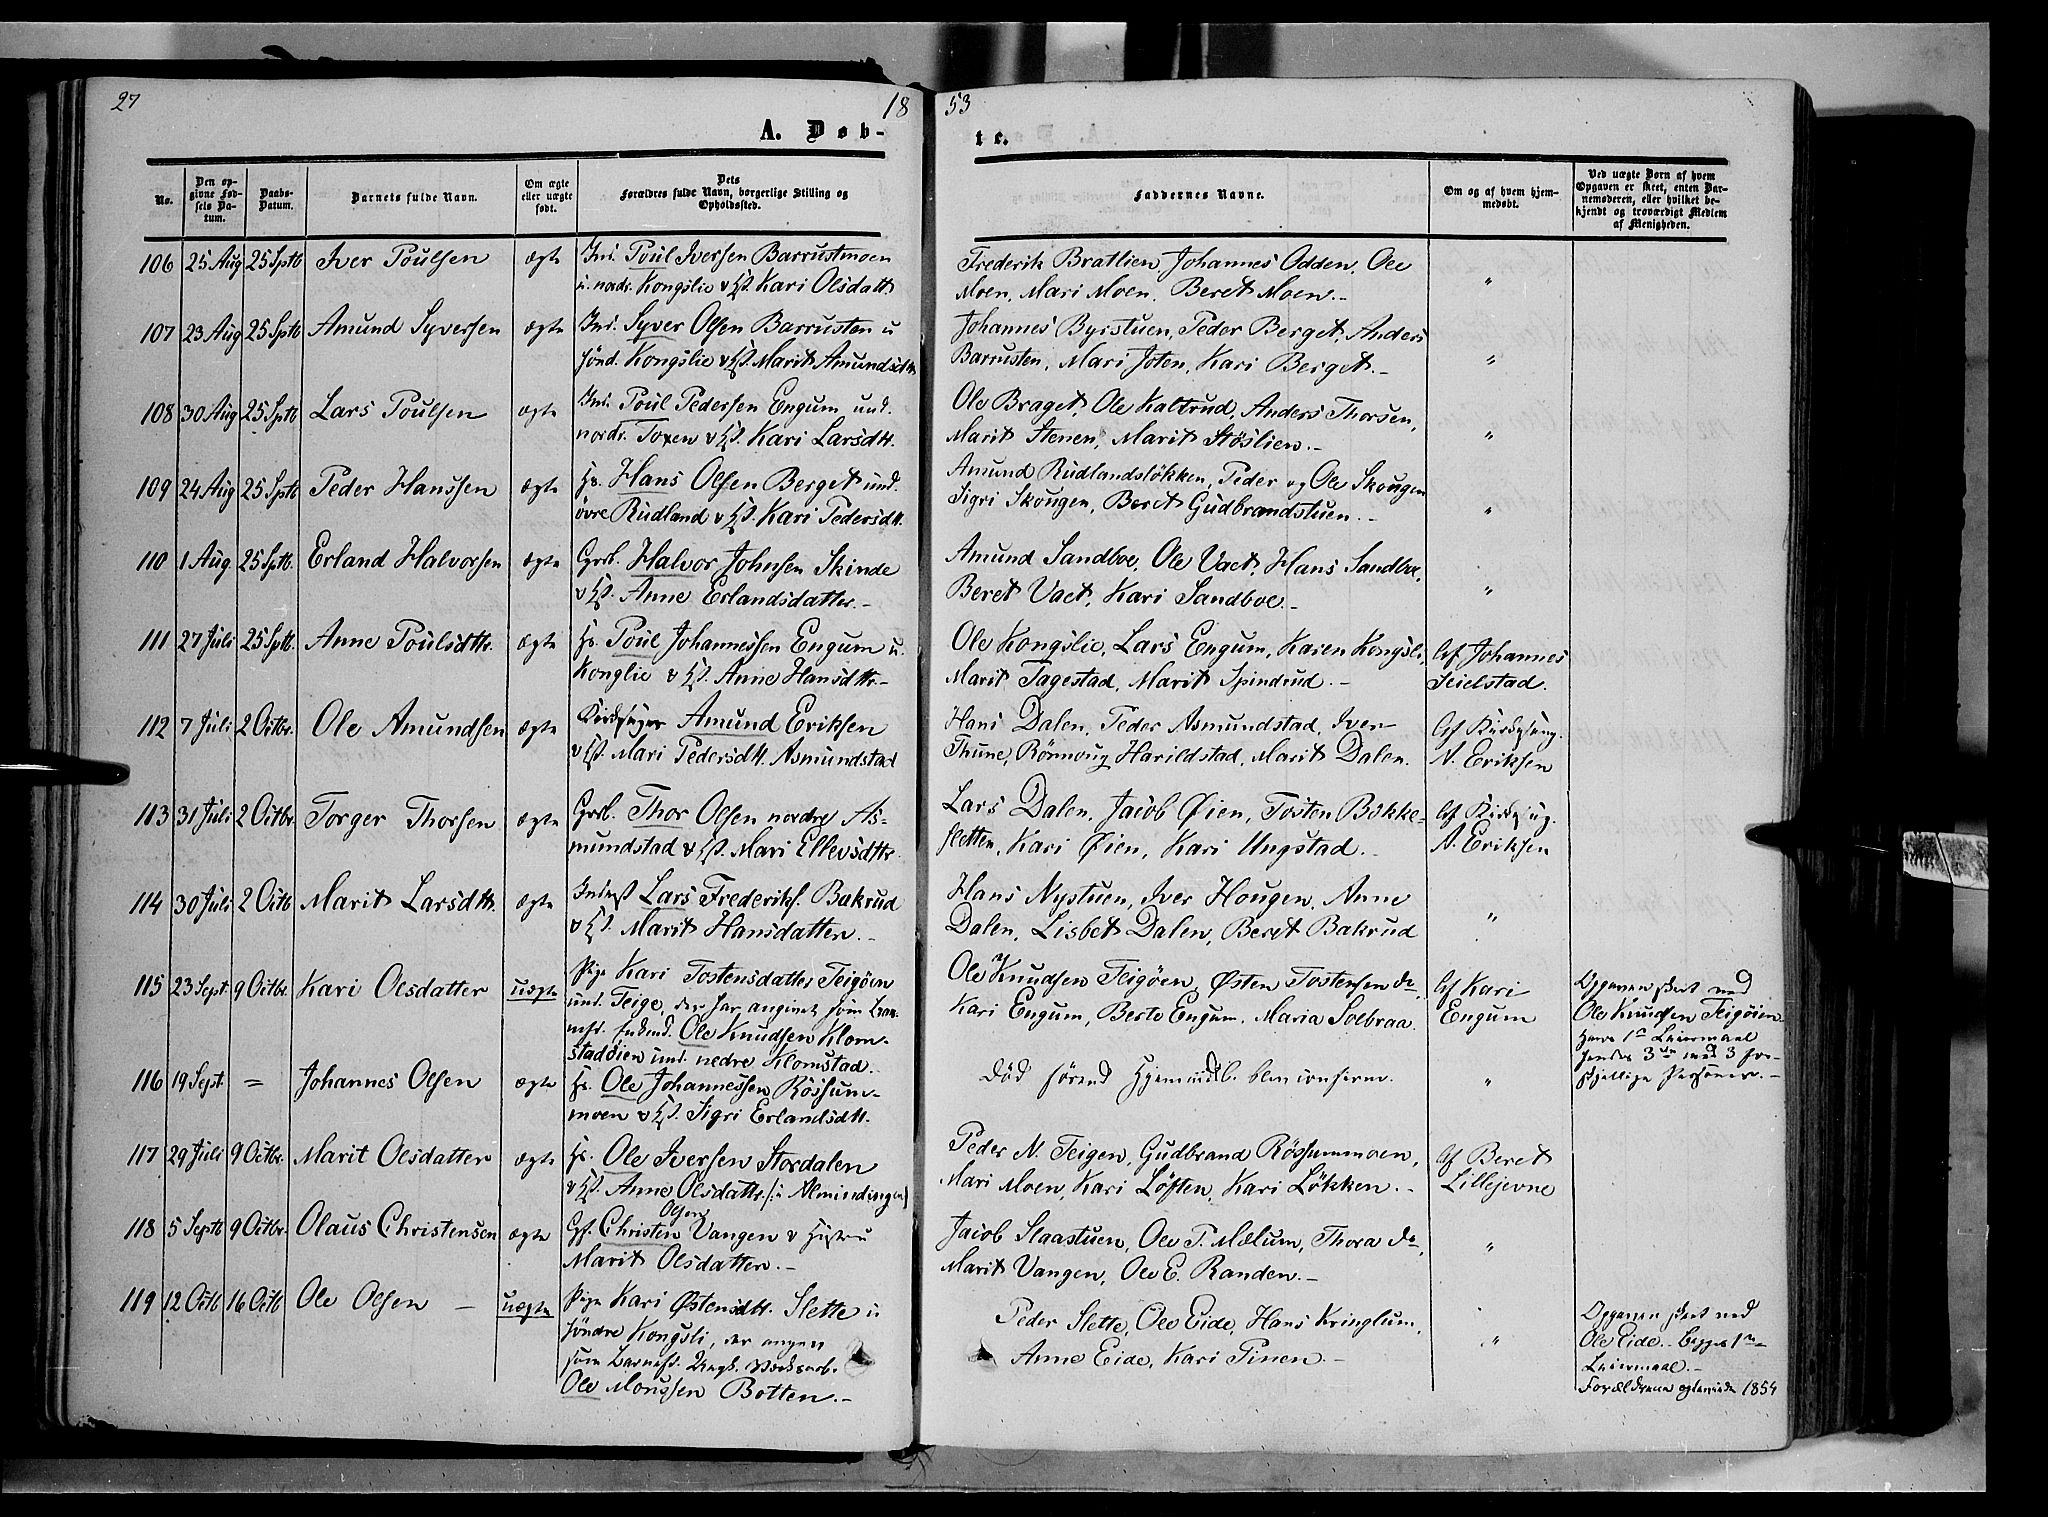 27
18
53
A. Døb-
te.
No.
Den op-
givne Fød-
sels Da-
tum.
Daabs-
Datum.
Barnets fulde Navn.
Om ægte
eller uægte
født.
Dets
Forældres fulde Navn, borgerlige Stilling og
Opholdssted.
Faddernes Navne.
Om og af hvem hjem-
medøbt.
Ved uægte Børn af hvem
Opgaven er skeet, enten Bar-
nemoderen, eller hvilket be-
kjendt og troværdigt Medlem
af Menigheden.
106 25 Aug 25 Sptb Iver Poulsen ægte Ind. Poul Iversen Barrustmoen
u. nordr. Kongslie & H. Kari Olsdatt
Frederik Brattlien, Johannes Odden, Ole
Moen, Mari Moen, Beret Moen.- "
107 23 Aug 25 Sptb Amund Syversen ægte Ind. Syver Olsen Barrusten u
sönd. Kongslie & H. Marit Amundsdtr
Johannes Byrstuen, Peder Berget, Anders
Barrusten, Mari Joten, Kari Berget.- "
108 30 Aug 25 Sptb Lars Poulsen ægte Ind. Poul Pedersen Engum und.
nordr. Toxen & H. Kari Larsdtr.
Ole Braget, Ole Kaltrud, Anders Thorsen,
Marit Stenen, Marit Stöslien.- "
109 24 Aug 25 Sptb Peder Hanssen ægte Hs. Hans Olsen Berget und.
övre Rudland & H. Kari Pedersdtr.
Amund Rudlandslökken, Peder og Ole Skougen
Sigri Skougen, Beret Gudbrandstuen.- "
110 1 Aug 25 Sptb. Erland Halvorsen ægte Grb. Halvor Johnsen Skinde
& H. Anne Erlandsdatter.-
Amund Sandboe, Ole Vaet, Hans Sandboe,
Beret Vaet, Kari Sandboe.- "
111 27 Juli 25 Sptb. Anne Poulsdtr. ægte Hs. Poul Johannessen Engum u.
Konglie & H. Anne Hansdtr-
Ole Kongslie, Lars Engum, Karen Kongsli,
Marit Tagestad, Marit Spindrud.-
Af Johannes
Seielstad.
112 7 Juli 2 Octbr. Ole Amundsen ægte Kirkesanger Amund Eriksen
& H. Mari Pedersdtr. Asmundstad
Hans Dalen, Peder Asmundstad, Iver
Thune, Rönnoug Harildstad, Marit Dalen.
Af Kirkesang.
A. Eriksen
113 31 Juli 2 Octbr. Torger Thorsen ægte Grb. Thor Olsen nordre As-
mundstad & H. Mari Ellevsdtr.
Lars Dalen, Jacob Øien, Tosten Bække-
sletten, Kari Øien, Kari Ungstad.-
Af Kirkesang.
A. Eriksen
114 30 Juli 2 Octb Marit Larsdtr. ægte Inderst Lars Frederiks. Bakrud
& H. Marit Hansdatter.-
Hans Nystuen, Iver Hougen, Anne
Dalen, Lisbet Dalen, Beret Bakrud "
115 23 Sept. 9 Octbr. Kari Olsdatter uægte Pige Kari Tostensdatter Teigöien
und. Teige, der har angivet som Bar-
nefr. Ole Knudsen Klom-
stadöien und. nedre Klomstad.
Ole Knudsen Teigöien, Østen Tostensen do,
Kari Engum, Berte Engum, Maria Solbraa.
Af Kari
Engum
Opgaven skeet ved
Ole Knudsen Teigöien.
Hans 1ste Leiermaal
hendes 3die med 3 for-
skjellige Personer.-
116 19 Sept. = Johannes Olsen ægte Hs. Ole Johannessen Rössum-
moen & H. Sigri Erlandsdtr.
Död förend Hjemmed. blev confirm. "
117 29 Juli 9 Octbr. Marit Olsdatter ægte Hs. Ole Iversen Stordalen
& H. Anne Olsdattr. /: i Almindingen
Peder N. Teigen, Gudbrand Rössummoen,
Mari Moen, Kari Löften, Kari Lökken.-
Af Beret
Lillejevne
118 5 Septb 9 Octbr. Olaus Christensen ægte Christen Olsen Vangen & Hustru
Marit Olsdatter.-
Jacob Staastuen, Ole P. Mælum, Thora do,
Marit Vangen, Ole E. Randen.- "
119 12 Octb 16 Octb Ole Olsen - uægte Pige Kari Østensdtr. Slette u
söndre Kongsli, der angav
som Barnefr. Ungk.
Ole Monssen Botten.-
Peder Slette, Ole Eide, Hans Kringlum,
Anne Eide, Kari Pinen.- "
Opgaven skeet ved
Ole Eide. Begges 1ste
Leiermaal.-
Forældrene 1854